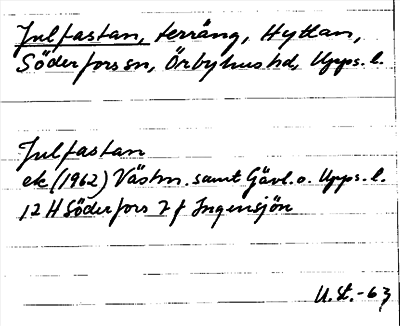 Julfastan, terräng, Hyttan,
Söderfors sn, Örbyhus hd, Upps. l.
Julfastan
ek (1962) Västm. samt Gävl. o. Upps. l.
12 H Söderfors 7 f Ingensjön
U.St. -63